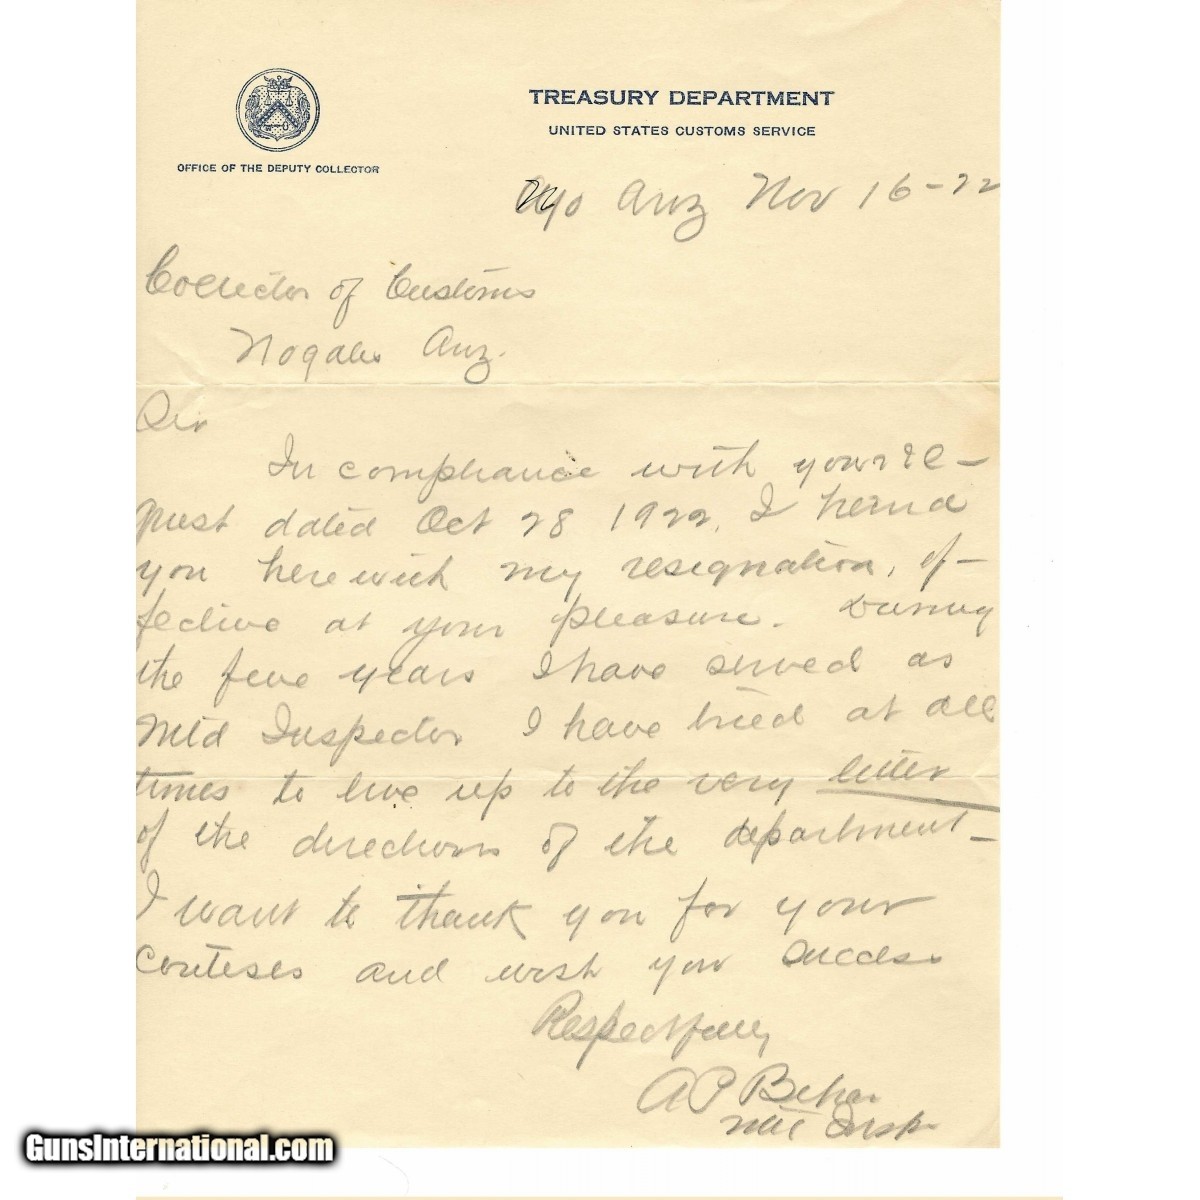 TREASURY DEPARTMENT
UNITED STATES CUSTOMS SERVICE
OFFICE OF THE DEPUTY COLLECTOR
Ajo Ariz Nov 16-22
Collector of Customs
Nogales Ariz.
Sir
In compliance with your re-
quest dated Oct 28 1922, I
you herewith my resignation, ef-
fective at your pleasure. During
the five years I have served as
Mtd Inspector I have tried at all
times to live up to the very letter
of the directions of the department-
I want to thank you for your
conteses and wish you success
Respectfully
A P
Mtd Insp.
GunsInternational.com